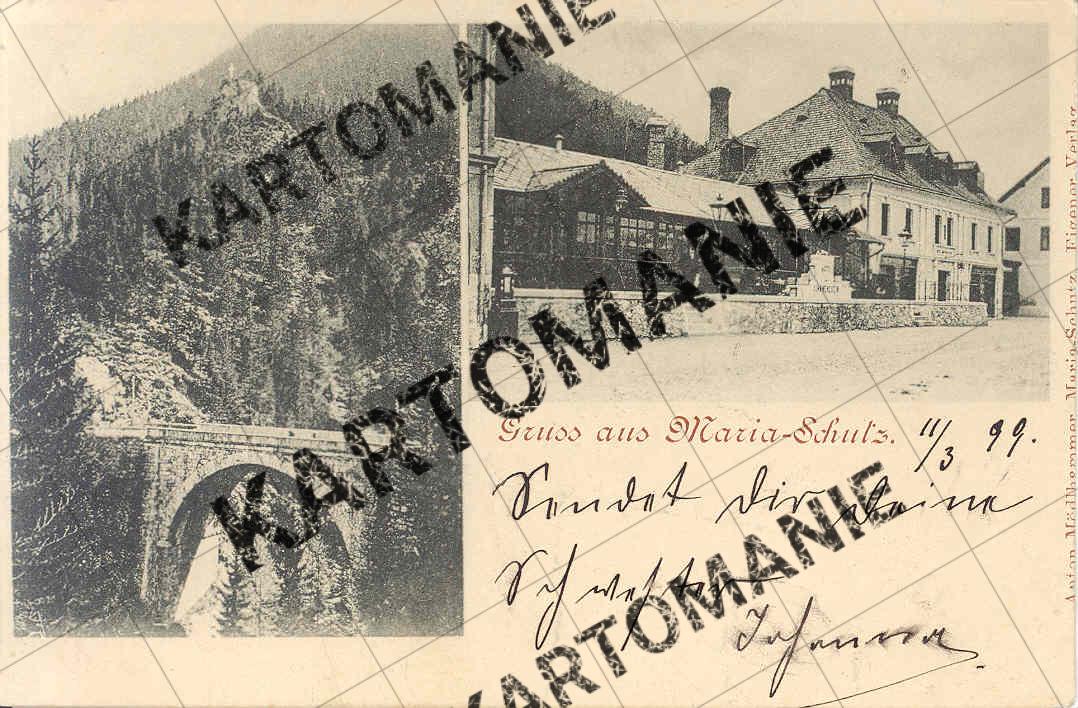 KARTOMANIE
KARTOMANIE
KARTOMANIE
KARTOMANIE
Gruss aus Maria-Schutz. 11/3 99.
Sendet dir deine
Schwester
Johanna
Anton Mädlhammer, Maria-Schutz. Eigener Verlag